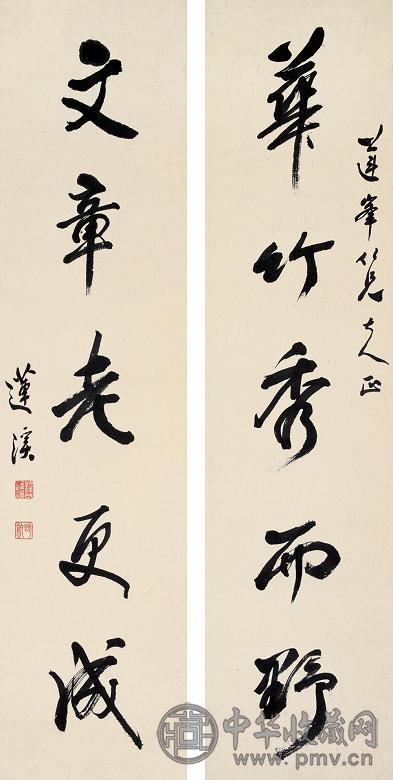 蓮峯仁兄大人正
華竹秀而野
文章老更成
蓮溪
中华收藏网
www.pmv.cn